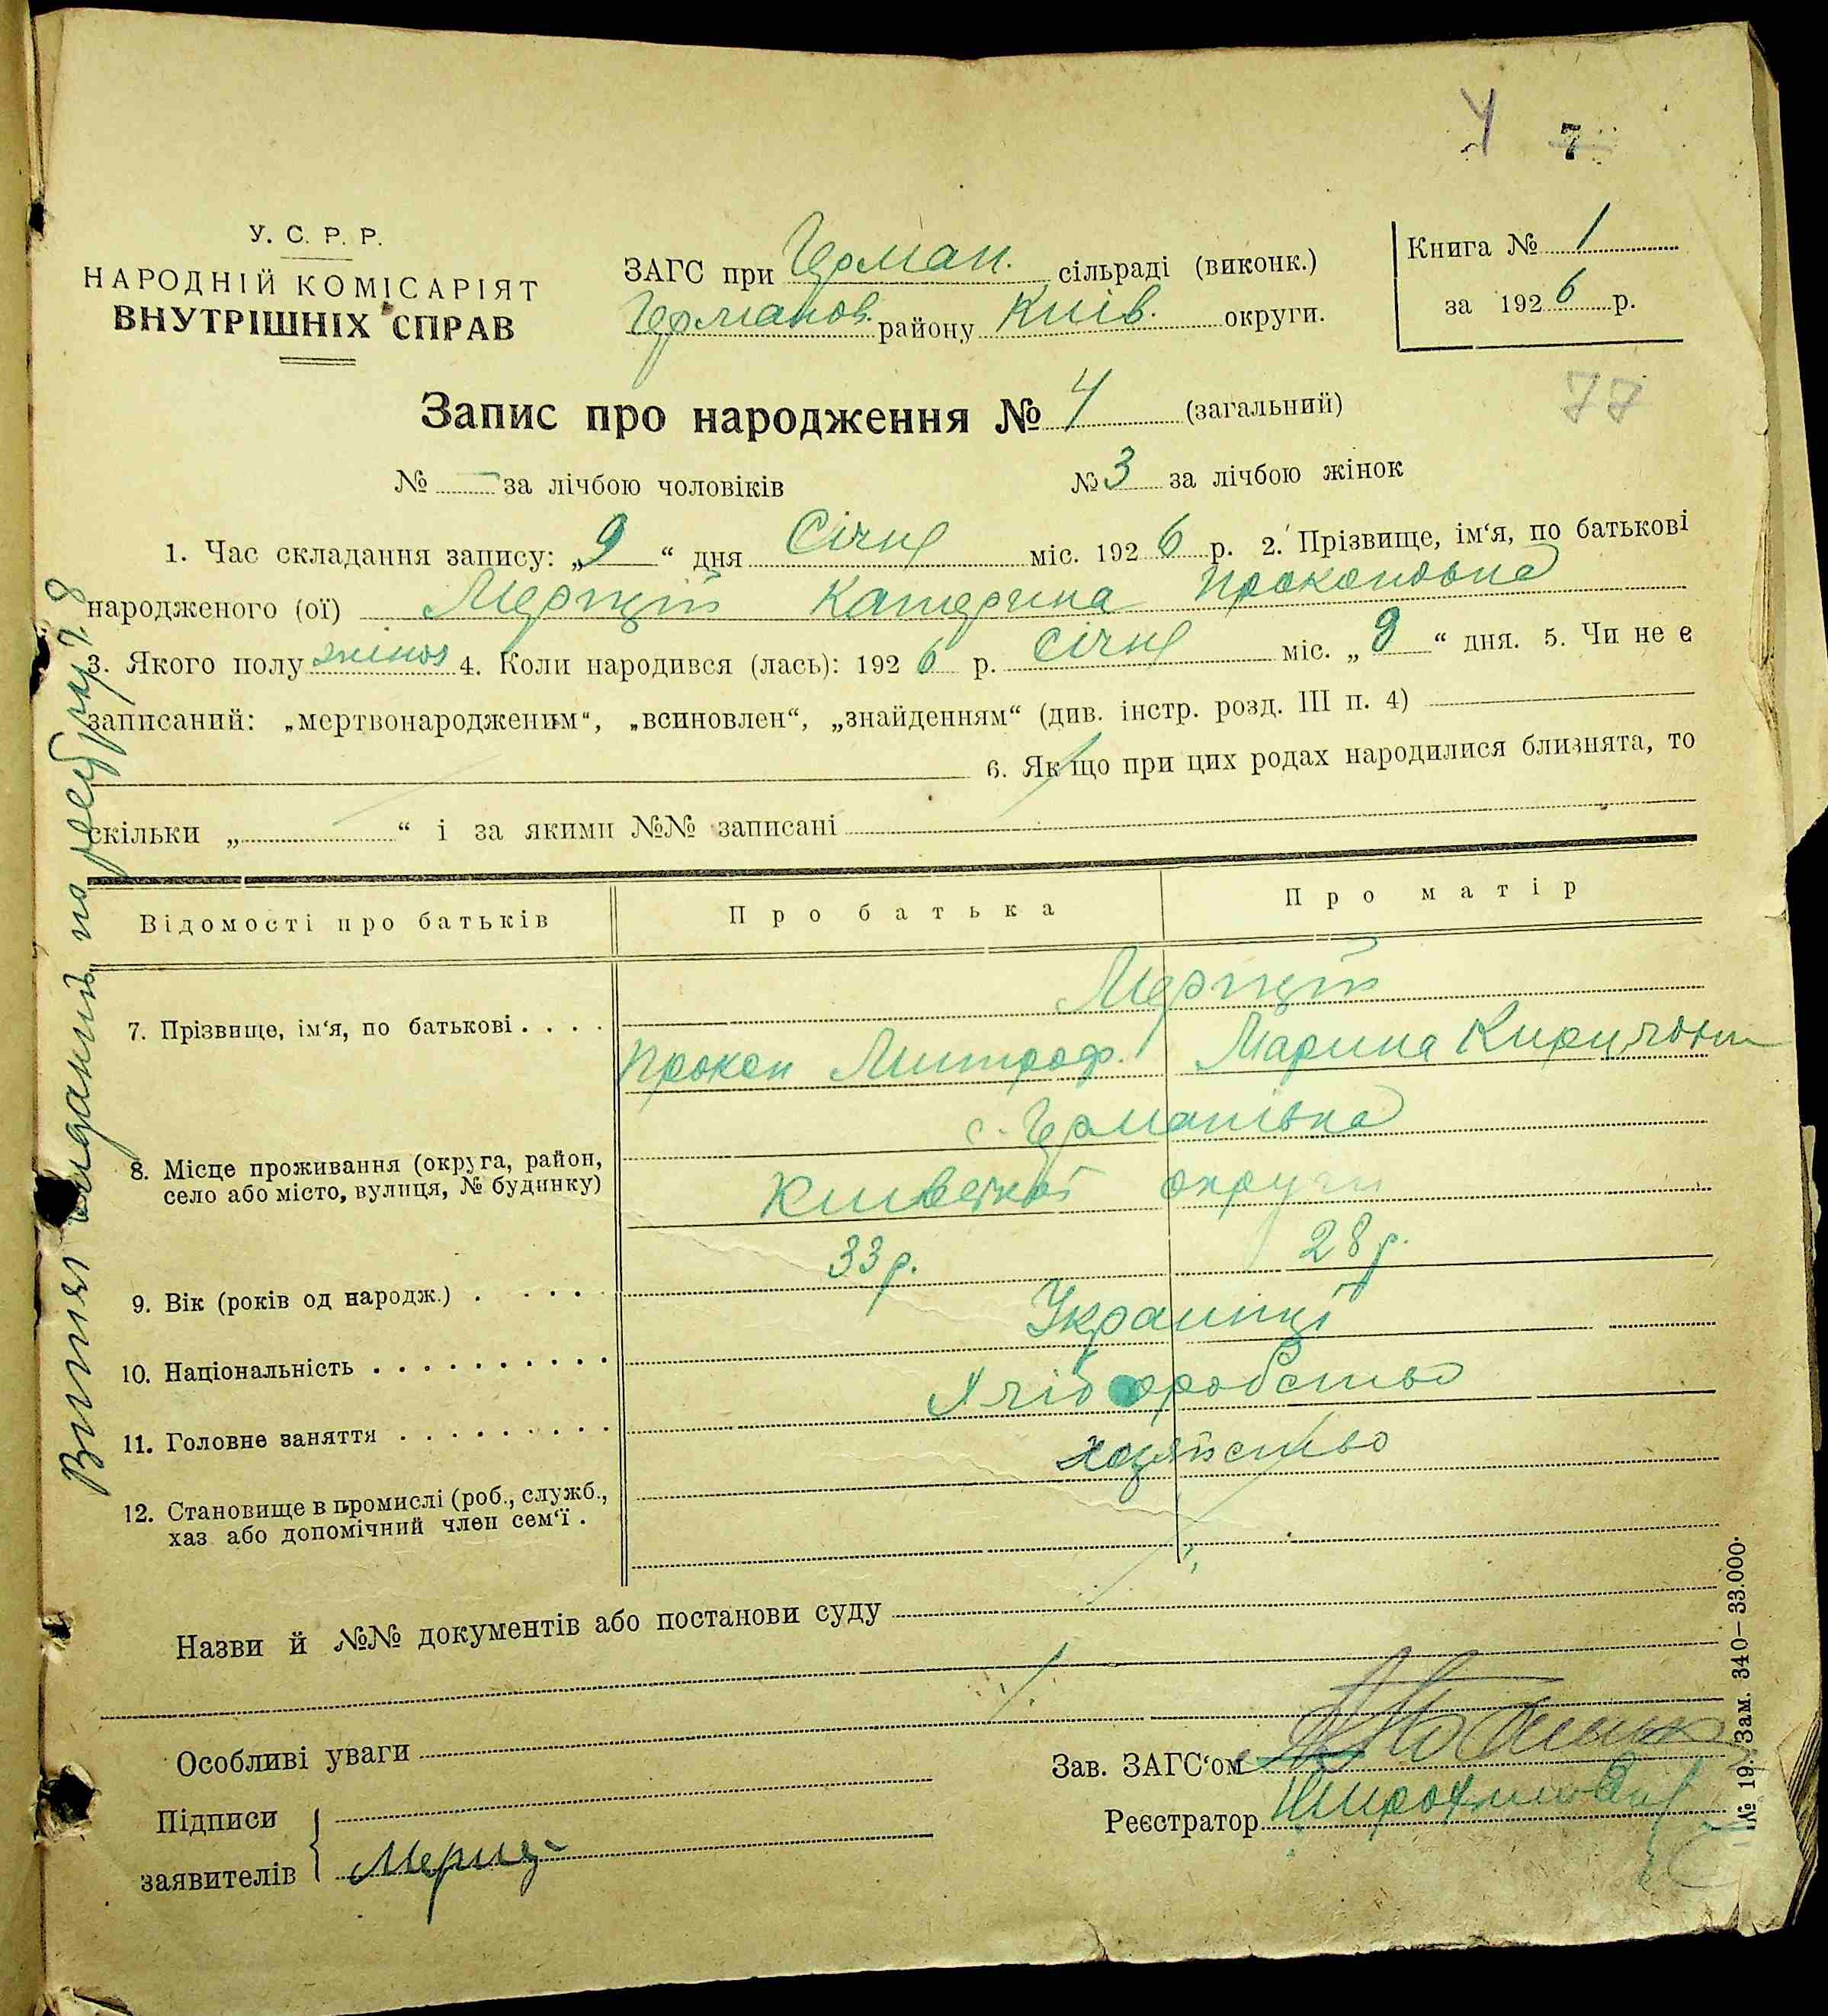 4 7
У. С. Р. Р.
НАРОДНІЙ КОМІСАРІЯТ
ВНУТРІШНІХ СПРАВ
ЗАГС при Герман. сільраді (виконк.)
Германов. району Київ. округи.
Книга № 1
за 1926 р.
77
Запис про народження № 4 (загальний)
№ — за лічбою чоловіків № 3 за лічбою жінок
1. Час складання запису: „9“ дня Січня міс. 1926 р. 2. Прізвище, ім‘я, по батькові
народженого (ої) Катерина Прокоповна
3. Якого полу жіноч 4. Коли народився (лась): 1926 р. Січня міс. „8“ дня. 5. Чи не є
записаний: „мертвонародженим“, „всиновлен“, „знайденням“ (див. інстр. розд. III п. 4)
6. Якщо при цих родах народилися близнята, то
скільки „ “ і за якими №№ записані
Відомості про батьків Про батька Про матір
7. Прізвище, ім‘я, по батькові . . . .
Прокоп Митроф. Марина Кириловн
с. Германівка
8. Місце проживання (округа, район,
село або місто, вулиця, № будинку)
Київської округи
9. Вік (років од народж.) . . . . 33 р. 28 р.
10. Національність . . . . . . . . . . Українці
11. Головне заняття . . . . . . . . . Хліборобство
12. Становище в промислі (роб., служб.,
хаз. або допомічний член сем‘ї .
хазяйство
Назви й №№ документів або постанови суду
Особливі уваги
Зав. ЗАГС‘ом
Підписи
заявителів
Реєстратор
№ 19. Зам. 340—33.000.
Витяг виданий по реєстру № 8